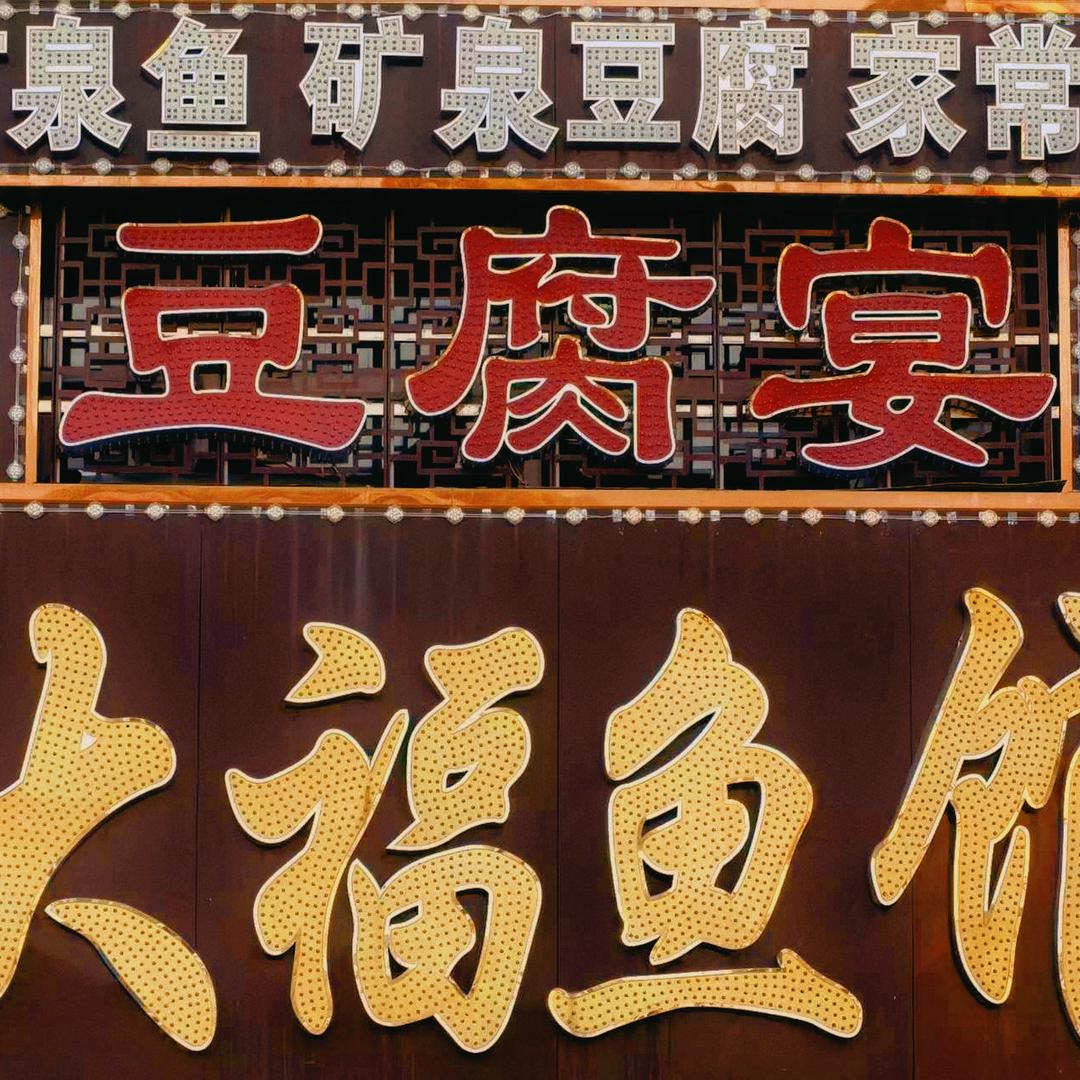 泉鱼 矿泉豆腐 家常
豆腐宴
大福鱼馆